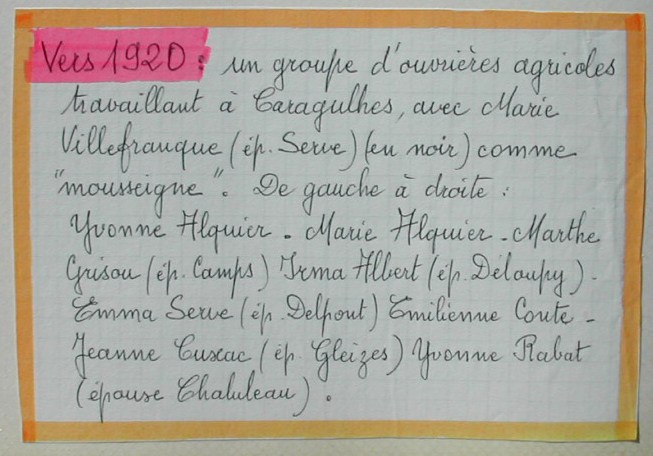 Vers 1920 : un groupe d'ouvrières agricoles
travaillant à Caragulhes, avec Marie
Villefranque (ép. Serve) (en noir) comme
"mousseigne". De gauche à droite :
Yvonne Alquier - Marie Alquier - Marthe
Grisou (ép. Camps) Irma Albert (ép. Déloupy) -
Emma Serve (ép. Delpout) Emilienne Conte -
Jeanne Cuxac (ép. Gleizes) Yvonne Rabat
(épouse Chaluleau).